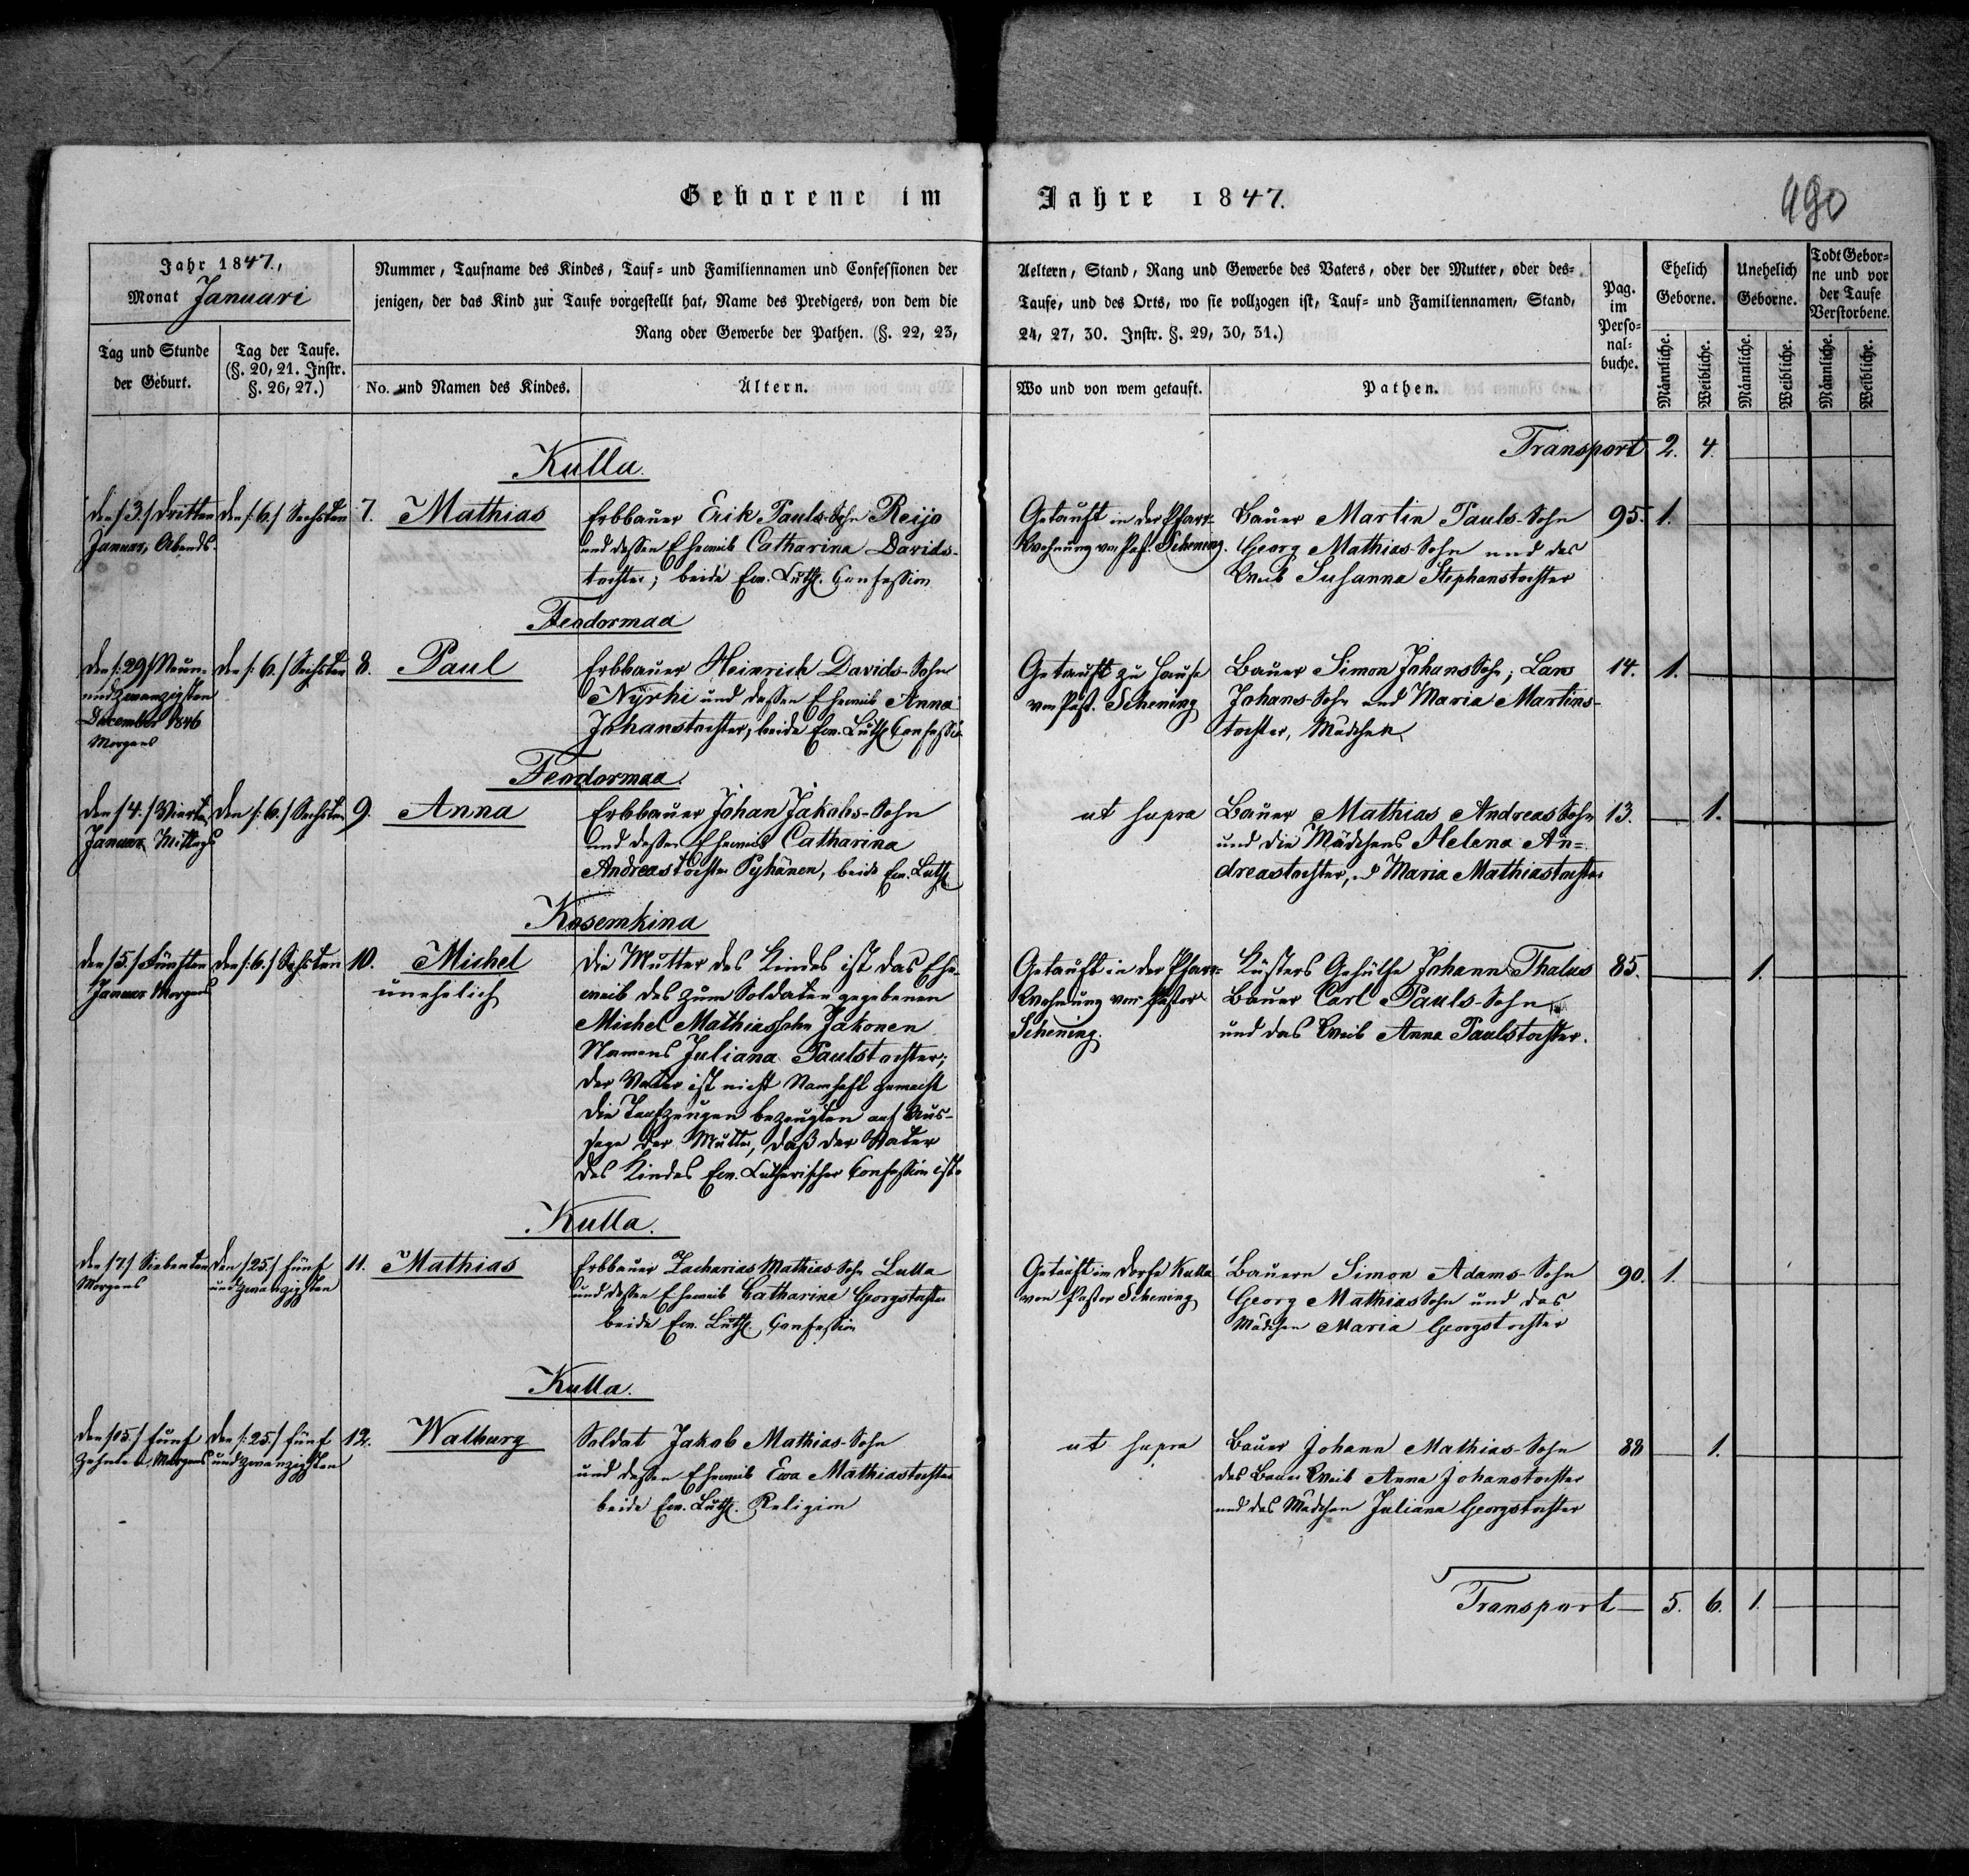 Geborene im Jahre 1847.
490
Jahr 1847,
Monat Januari
Tag und Stunde
der Geburt.
Tag der Taufe.
(§. 20, 21. Instr.
§. 26, 27.)
Nummer, Taufname des Kindes, Tauf- und Familiennamen und Confessionen der
jenigen, der das Kind zur Taufe vorgestellt hat, Name des Predigers, von dem die
Rang oder Gewerbe der Pathen. (§. 22, 23,
No. und Namen des Kindes.
Ältern.
Aeltern, Stand, Rang und Gewerbe des Vaters, oder der Mutter, oder des-
Taufe, und des Orts, wo sie vollzogen ist, Tauf- und Familiennamen, Stand,
24, 27, 30. Instr. §. 29, 30, 31.)
Wo und von wem getauft.
Pathen.
Pag.
im
Perso-
nal-
buche.
Ehelich
Geborne.
Unehelich
Geborne.
Todt Gebor-
ne und vor
der Taufe
Verstorbene.
Männliche.
Weibliche.
Männliche.
Weibliche.
Männliche.
Weibliche.
Transport 2. 4.
Kulla.
den /:3./ dritten
Januar, Abends.
den /:6./ Sechsten
7.
Mathias
Erbbauer Erik Pauls-Sohn Reijo
und dessen Eheweib Catharina Davids-
tochter; beide Ew. Luth. Confession
Getauft in der Pfarr-
Wohnung von Past. Schening.
Bauer Martin Pauls-Sohn
Georg Mathias-Sohn und das
Weib Susanna Stephanstochter
95. 1.
Feodormaa
den /:29/ Neun-
undzwanzigsten
December 1846
Morgens
den /:6./ Sechsten
8.
Paul
Erbbauer Heinrich Davids-Sohn
Nyrki und dessen Eheweib Anna
Johanstochter, beide Ew. Luth. Confession
Getauft zu Hause
von Past. Schening
Bauer Simon Johans Sohn; Lars
Johans-Sohn und Maria Martins-
tochter, Mädchen
14. 1.
Feodormaa.
den /4./ Vierten
Januar Mittags
den /:6./ Sechsten
9.
Anna
Erbbauer Johan Jakobs-Sohn
und dessen Eheweib Catharina
Andreastochter Pyhänen, beide Ew. Luth.
ut supra
Bauer Mathias Andreas Sohn
und die Mädchens Helena An-
dreastochter, u Maria Mathiastochter
13. 1.
Kosemkina
den /5./ Fünften
Januar Morgens
den /:6./ Sechsten
10.
Michel
unehelich
Die Mutter des Kindes ist das Ehe-
weib des zum Soldaten gegebenen
Michel Mathiassohn Jakonen
Namens Juliana Paulstochter;
der Vater ist nicht Namhaft gemacht
Die Taufzeugen bezeugten auf Aus-
sage der Mutter, daß der Vater
des Kindes Ew. Lutherischer Confession ist.
Getauft in der Pfarr-
Wohnung von Pastor
Schening.
Küsters Gehülfe Johann Thalus
Bauer Carl Pauls-Sohn
und das Weib Anna Paulstochter.
85. 1.
Kulla.
den /7/ Siebenten
Morgens
den /25./ fünf
undzwanzigsten
11.
Mathias
Erbbauer Zacharias Mathias-Sohn Lulla
und dessen Eheweib Catharina Georgstochter
beide Ew. Luth. Confession
Getauft im Dorfe Kulla
von Pastor Schening
Bauern Simon Adams-Sohn
Georg Mathias Sohn und das
Mädchen Maria Georgstochter
90. 1.
Kulla.
den /15./ fünf
zehnten Morgens
den /:25./ fünf
undzwanzigsten
12.
Walburg
Soldat Jakob Mathias-Sohn
und dessen Eheweib Ewa Mathiastochter
beide Ew. Luth. Religion
ut supra
Bauer Johann Mathias-Sohn
des Bauer Weib Anna Johanstochter
und das Mädchen Juliana Georgstochter
88 1.
Transport 5. 6. 1.